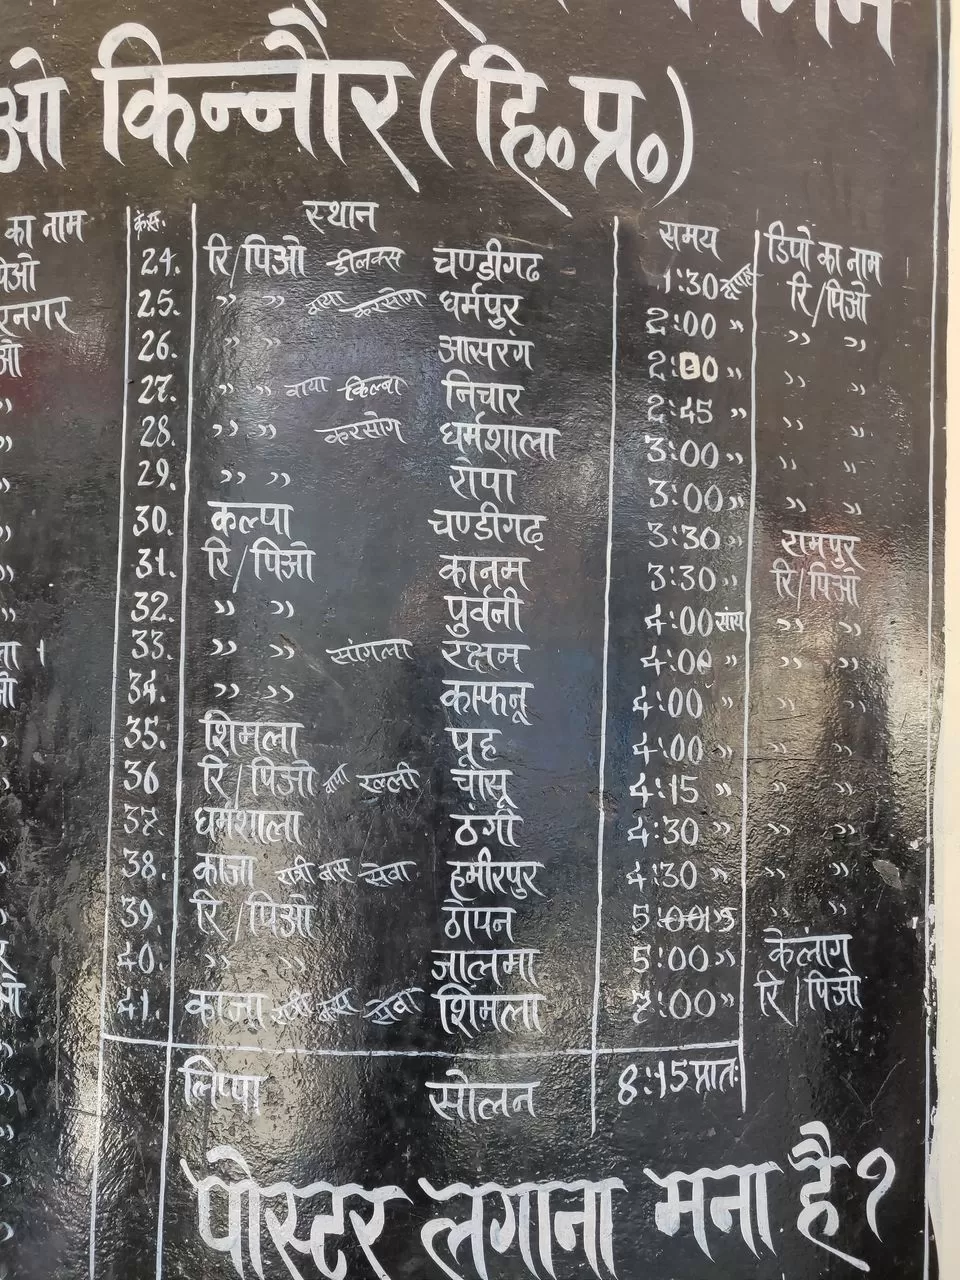 ओ किन्नौर (हि॰प्र॰)
का नाम क्र.स. स्थान समय डिपो का नाम
पिओ 24. रि/पिओ डीलक्स चण्डीगढ़ 1:30 रि/पिओ
रनगर 25. ,, ,, वाया करसोग धर्मपुर 2:00 ,, ,, ,,
ओ 26. ,, ,, आसरंग 2:00 ,, ,, ,,
,, 27. ,, ,, वाया किल्बा निचार 2:45 ,, ,, ,,
,, 28. ,, ,, करसोग धर्मशाला 3:00 ,, ,, ,,
,, 29. ,, ,, रोपा 3:00 ,, ,, ,,
,, 30. कल्पा चण्डीगढ़ 3:30 ,, रामपुर
,, 31. रि/पिओ कानम 3:30 ,, रि/पिओ
,, 32. ,, ,, पुर्वनी 4:00 सांय ,, ,,
33. ,, ,, सांगला रक्षम 4:00 ,, ,, ,,
ओ 34. ,, ,, काफनू 4:00 ,, ,, ,,
,, 35. शिमला पूह 4:00 ,, ,, ,,
,, 36 रि/पिओ वाया रल्ली चांसू 4:15 ,, ,, ,,
37. धर्मशाला ठंगी 4:30 ,, ,, ,,
,, 38. काजा रात्री बस सेवा हमीरपुर 4:30 ,, ,, ,,
,, 39. रि/पिओ ठोपन 5:00 ,, ,,
40. ,, ,, जालमा 5:00 ,, केलांग
ओ 41. काजा रात्री बस सेवा शिमला 7:00 ,, रि/पिओ
लिप्पा सोलन 8:15 प्रातः
पोस्टर लगाना मना है १